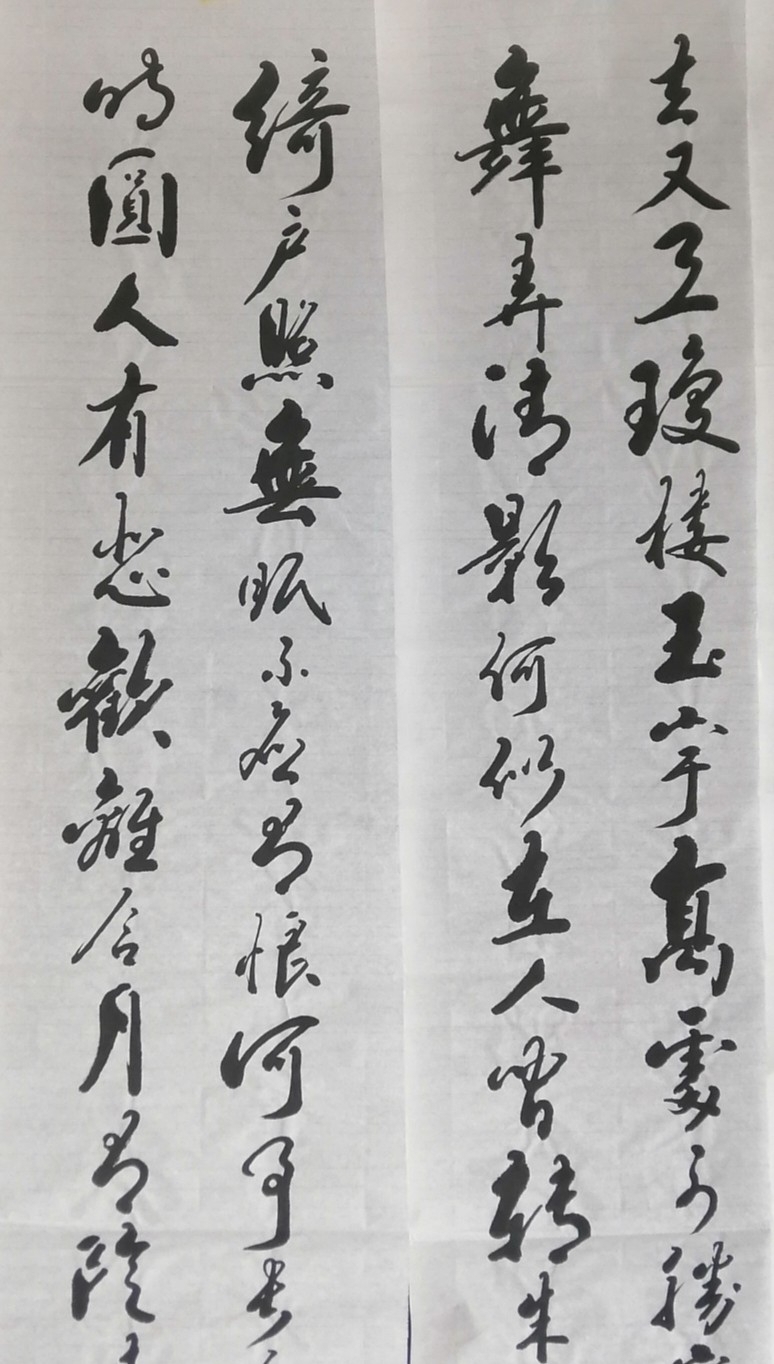 去又恐瓊樓玉宇高處不勝
舞弄清影何似在人間轉朱
綺戶照無眠不應有恨何事長
時圓人有悲歡離合月有陰